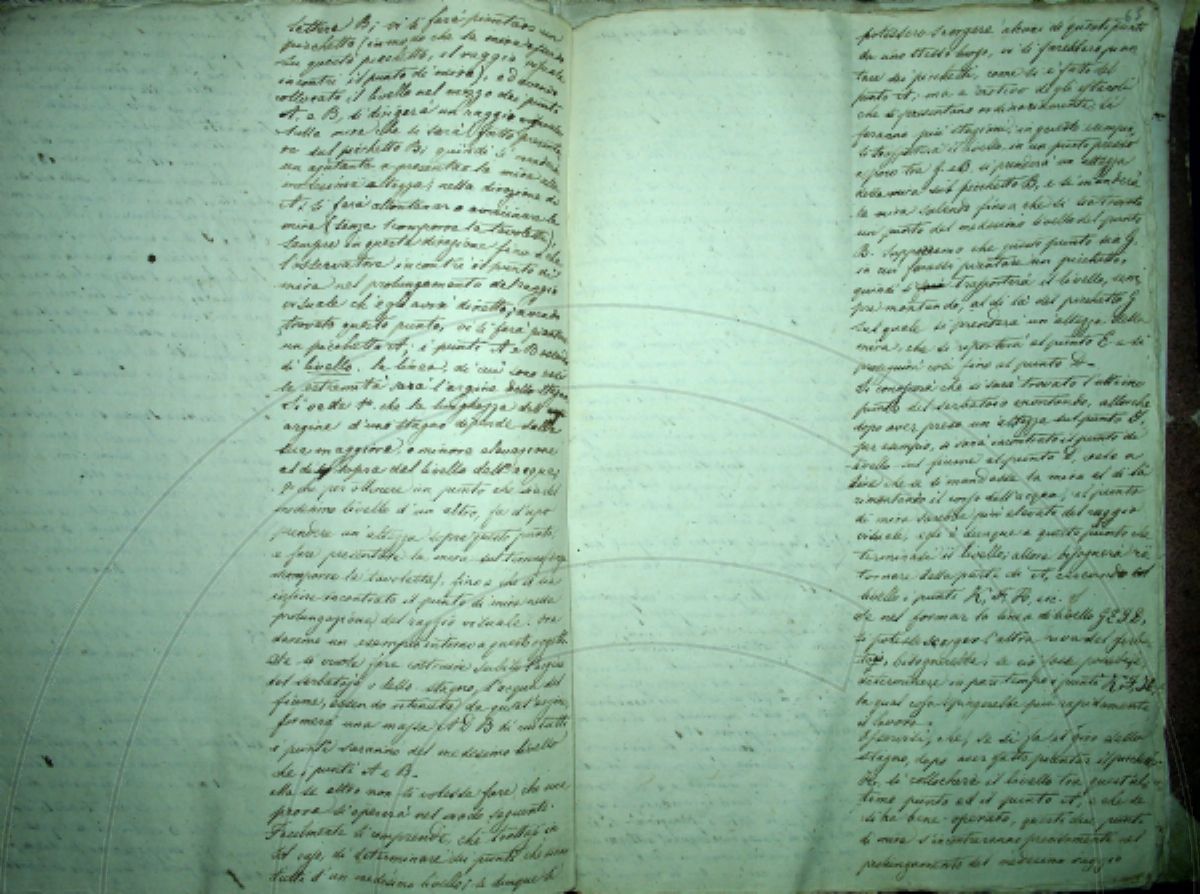 lettera B; vi si farà piantare un
picchetto (in modo che la mira essendo
su questo picchetto, il raggio visuale
incontri il punto di mira); ed avendo
collocato il livello nel mezzo dei punti
A, e B, si dirigerà un raggio
sulla mira che si sarà fatta presenta
re sul picchetto B; quindi si manderà
un ajutante a presentare la mira alla
medesima altezza, nella direzione di
A; si farà allontanare o avvicinare la
mira (senza scomporre la tavoletta),
sempre in questa direzione fino a che
l'osservatore incontri il punto di
mira nel prolungamento del raggio
visuale ch'egli avrà diretto; avendo
trovato questo punto, vi si farà piantare
un picchetto A; i punti A e B saranno
di livello. la linea, di cui sono
le estremità sarà l'argine dello stagno
Si vede che la lunghezza dell'
argine d'uno stagno dipende dalla
sua maggiore, o minore elevazione
al di sopra del livello dell'acqua;
che per ottenere un punto che sia del
medesimo livello d'un altro, fa d'uopo
prendere un'altezza sopra questo punto,
e fare presentare la mira sul terreno (senza
scomporre la tavoletta), fino a che si sia
infine incontrato il punto di mira nella
prolungazione del raggio visuale. Ora
daremo un esempio intorno a questo oggetto
Se si vuole fare costruire subito l'argine
del serbatojo o dello stagno, l'acqua del
fiume, essendo ritenuta da quest'argine,
formerà una massa A D B di cui tutti
i punti saranno del medesimo livello
de' punti A e B.
Ma se altro non si volesse fare che una
prova si opererà nel modo seguente.
Facilmente si comprende, che trattasi in
tal caso, di determinare dei punti che siano
tutti d'un medesimo livello; se dunque si
63
potessero scorgere alcuni di questi punti
da uno stesso luogo, vi si farebbero pian
tare dei picchetti, come si è fatto del
punto A; ma a motivo degli ostacoli
che si presentano ordinariamente, si
faranno più stazioni; in questo esempio,
si trasporterà il livello in un punto preso
a poco tra G e B. si prenderà un'altezza
della mira sul picchetto B, e si manderà
la mira salendo fino a che si sia trovato
un punto del medesimo livello del punto
B. Supporremo che questo punto sia G.
in cui farassi piantare un picchetto,
quindi si trasporterà il livello, sem
pre montando, al di là del picchetto G
sul quale si prenderà un'altezza della
mira, che si riporterà al punto E e si
proseguirà così fino al punto D.
Si conoscerà che si sarà trovato l'ultimo
punto del serbatojo montando, allorchè
dopo aver preso un'altezza sul punto
per esempio, si sarà incontrato il punto di
livello sul fiume al punto D, vale a
dire che se si mandasse la mira al di là
rimontando il corso dell'acqua, il punto
di mira sarebbe più elevato del raggio
visuale, egli è dunque a questo punto che
terminasi il livello, allora bisognerà ri
tornare dalla parte di A, cercando
livello i punti K, I, H, ec.
Se nel formar la linea di livello G E D,
si potesse scorger l'altra riva del serba
tojo, bisognerebbe, se ciò fosse possibile,
determinare in pari tempo i punti K I H
la qual cosa spingerebbe più rapidamente
il lavoro.
Osservisi, che, se si fa il giro dello
stagno, dopo aver fatto piantare il picchetto
si collocherà il livello tra quest'ul
timo punto ed il punto A, e che se
si ha bene operato, questi due punti
di mira s'incontreranno precisamente nel
prolungamento del medesimo raggio